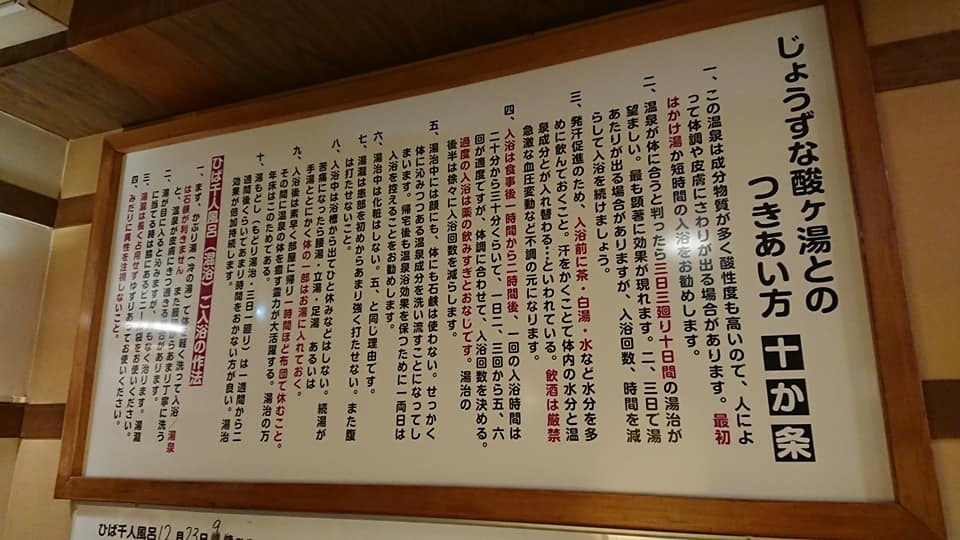 じょうずな酸ヶ湯との
つきあい方 十か条
一、この温泉は成分物質が多く酸性度も高いので、人によ
って体調や皮膚にさわりが出る場合があります。最初
はかけ湯か短時間の入浴をお勧めします。
二、温泉が体に合うと判ったら三日三廻り十日間の湯治が
望ましい。最も顕著に効果が現れます。二、三日で湯
あたりが出る場合がありますが、入浴回数、時間を減
らして入浴を続けましょう。
三、発汗促進のため、入浴前に茶・白湯・水など水分を多
めに飲んでおくこと。汗をかくことで体内の水分と温
泉成分とが入れ替わる…といわれている。飲酒は厳禁
急激な血圧変動など不調の元になります。
四、入浴は食事後一時間から二時間後、一回の入浴時間は
二十分から三十分くらいで、一日二、三回から五、六
回が適度ですが、体調に合わせて、入浴回数を決める。
過度の入浴は薬の飲みすぎとおなじです。湯治の
後半は徐々に入浴回数を減らします。
五、湯治中には顔にも、体にも石鹸は使わない。せっかく
体に沁みつつある温泉成分を洗い流すことになってし
まいます。帰宅後も温泉浴効果を保つために一両日は
入浴を控えることをお勧めします。
六、湯治中は化粧はしない。五、と同じ理由です。
七、湯瀧は患部を初めからあまり強く打たせない。また腹
は打たせないこと。
八、入浴中は浴槽から出てひと休みなどはしない。続湯が
苦痛になったら腰湯・立湯・足湯 あるいは
手湯ととにかく体の一部はお湯に入れておく。
九、入浴後は素早く部屋に帰り一時間ほど布団で休むこと。
その間に温泉の体を癒す霊力が大活躍する。湯治の万
年床はこのためである。
十、湯もどし（もどり湯治・三日一廻り）は一週間から二
週間後くらいであまり時間をおかない方が良い。湯治
効果が倍加持続します。
ひば千人風呂（混浴）ご入浴の作法
一、まず、かぶり湯（冷の湯）で体を軽く洗って入浴／湯泉
は石鹸が利きません また最初からあまり丁寧に洗う
と、温泉が皮膚にきつ過ぎる場合があります。
二、湯が目に入ると沁みますが、まもなく治ります。湯瀧
に打たれる時は脇にあるビニール袋をお使いください。
三、湯瀧は長く占用せずゆずりあってお使いください。
四、みだりに異性を注視しないこと。
ひば千人風呂12月23日9